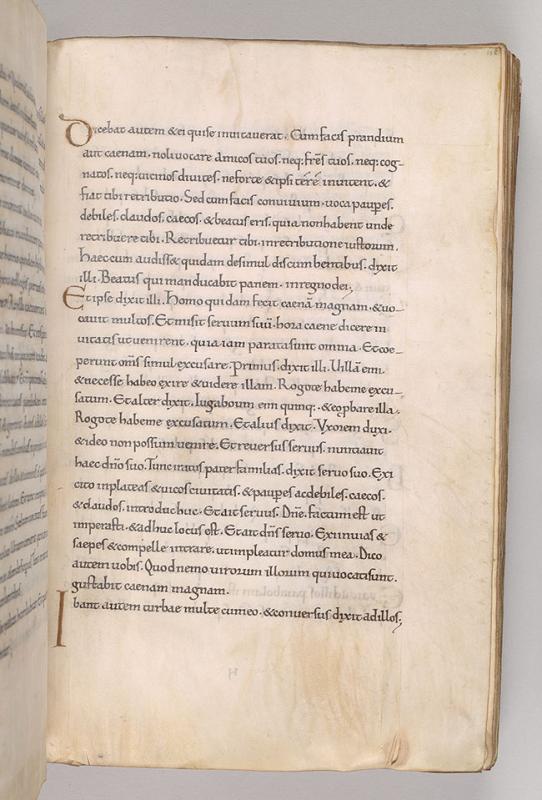 Dicebat autem & ei qui se inuitauerat. Cum facis prandium
aut caenam. noli uocare amicos tuos. neq; fr̄es tuos. neq; cog-
natos. neq; uicinos diuites. ne forte & ipsi te reinuitent. &
fiat tibi retributio. Sed cum facis conuiuium. uoca pauꝑes.
debiles. claudos. caecos. & beatus eris. quia non habent unde
retribuere tibi. Retribuetur tibi. in retributione iustorum.
Haec cum audiss& quidam de simul discumbentibus. dixit
illi. Beatus qui manducabit panem. in regno dei;
Et ipse dixit illi. Homo quidam fecit caenā magnam. & uo-
cauit multos. Et misit seruum suū. hora caene dicere in
uitatis ut uenirent. quia iam parata sunt omnia. Et coe-
perunt om̄s simul excusare. Primus. dixit illi. Uillā emi.
& necesse habeo exire & uidere illam. Rogo te habe me excu-
satum. Et alter dixit. Iuga boum emi quinq;. & eo ꝓbare illa.
Rogo te habe me excusatum. Et alius dixit. Vxorem duxi.
& ideo non possum uenire. Et reuersus seruus. nuntiauit
haec dn̄o suo. Tunc iratus pater familias. dixit seruo suo. Exi
cito in plateas & uicos ciuitatis. & pauꝑes ac debiles. caecos.
& claudos. introduc huc. Et ait seruus. Dn̄e. factum est ut
imperasti. & adhuc locus est. Et ait dn̄s seruo. Exi in uias &
saepes & compelle intrare. ut impleatur domus mea. Dico
autem uobis. Quod nemo uirorum illorum qui uocati sunt.
gustabit caenam magnam.
Ibant autem turbae multe cum eo. & conuersus dixit ad illos;